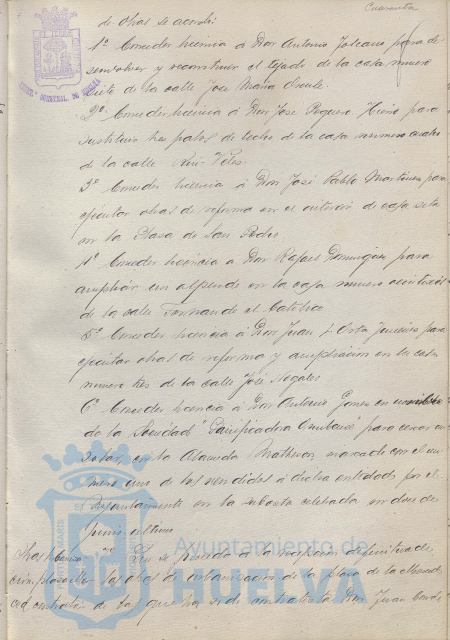 Cuarenta
de obras se acordó:
1º Conceder licencia á Don Antonio Toscano para de
senvolver y reconstruir el tejado de la casa número
siete de la calle José María
2º Conceder licencia á Don José Peguero para
sustituir tres palos de techo de la casa número cuatro
de la calle Ruiz Vélez.
3º Conceder licencia á Don José Pablo Martínez para
ejecutar obras de reforma en el interior de casa sita
en la Plaza de San Pedro
4º Conceder licencia á Don Rafael Domínguez para
ampliar un alpende en la casa número
de la calle Fernando el Católico
5º Conceder licencia á Don Juan Orta Jimenez para
ejecutar obras de reforma y ampliación en la casa
número tres de la calle José Nogales
6º Conceder licencia á Don Antonio Gomez en nombre
de la Sociedad " Panificadora Onubense para cercar un
solar, en la Alameda marcado con el nú
mero de los vendidos á dicha entidad por el
Ayuntamiento en la subasta celebrada en doce de
junio último
Se procede á la recepción definitiva de
las obras de urbanización de la plaza de la Merced
de la que ha sido contratista Don Juan
Ayuntamiento de
HUELVA